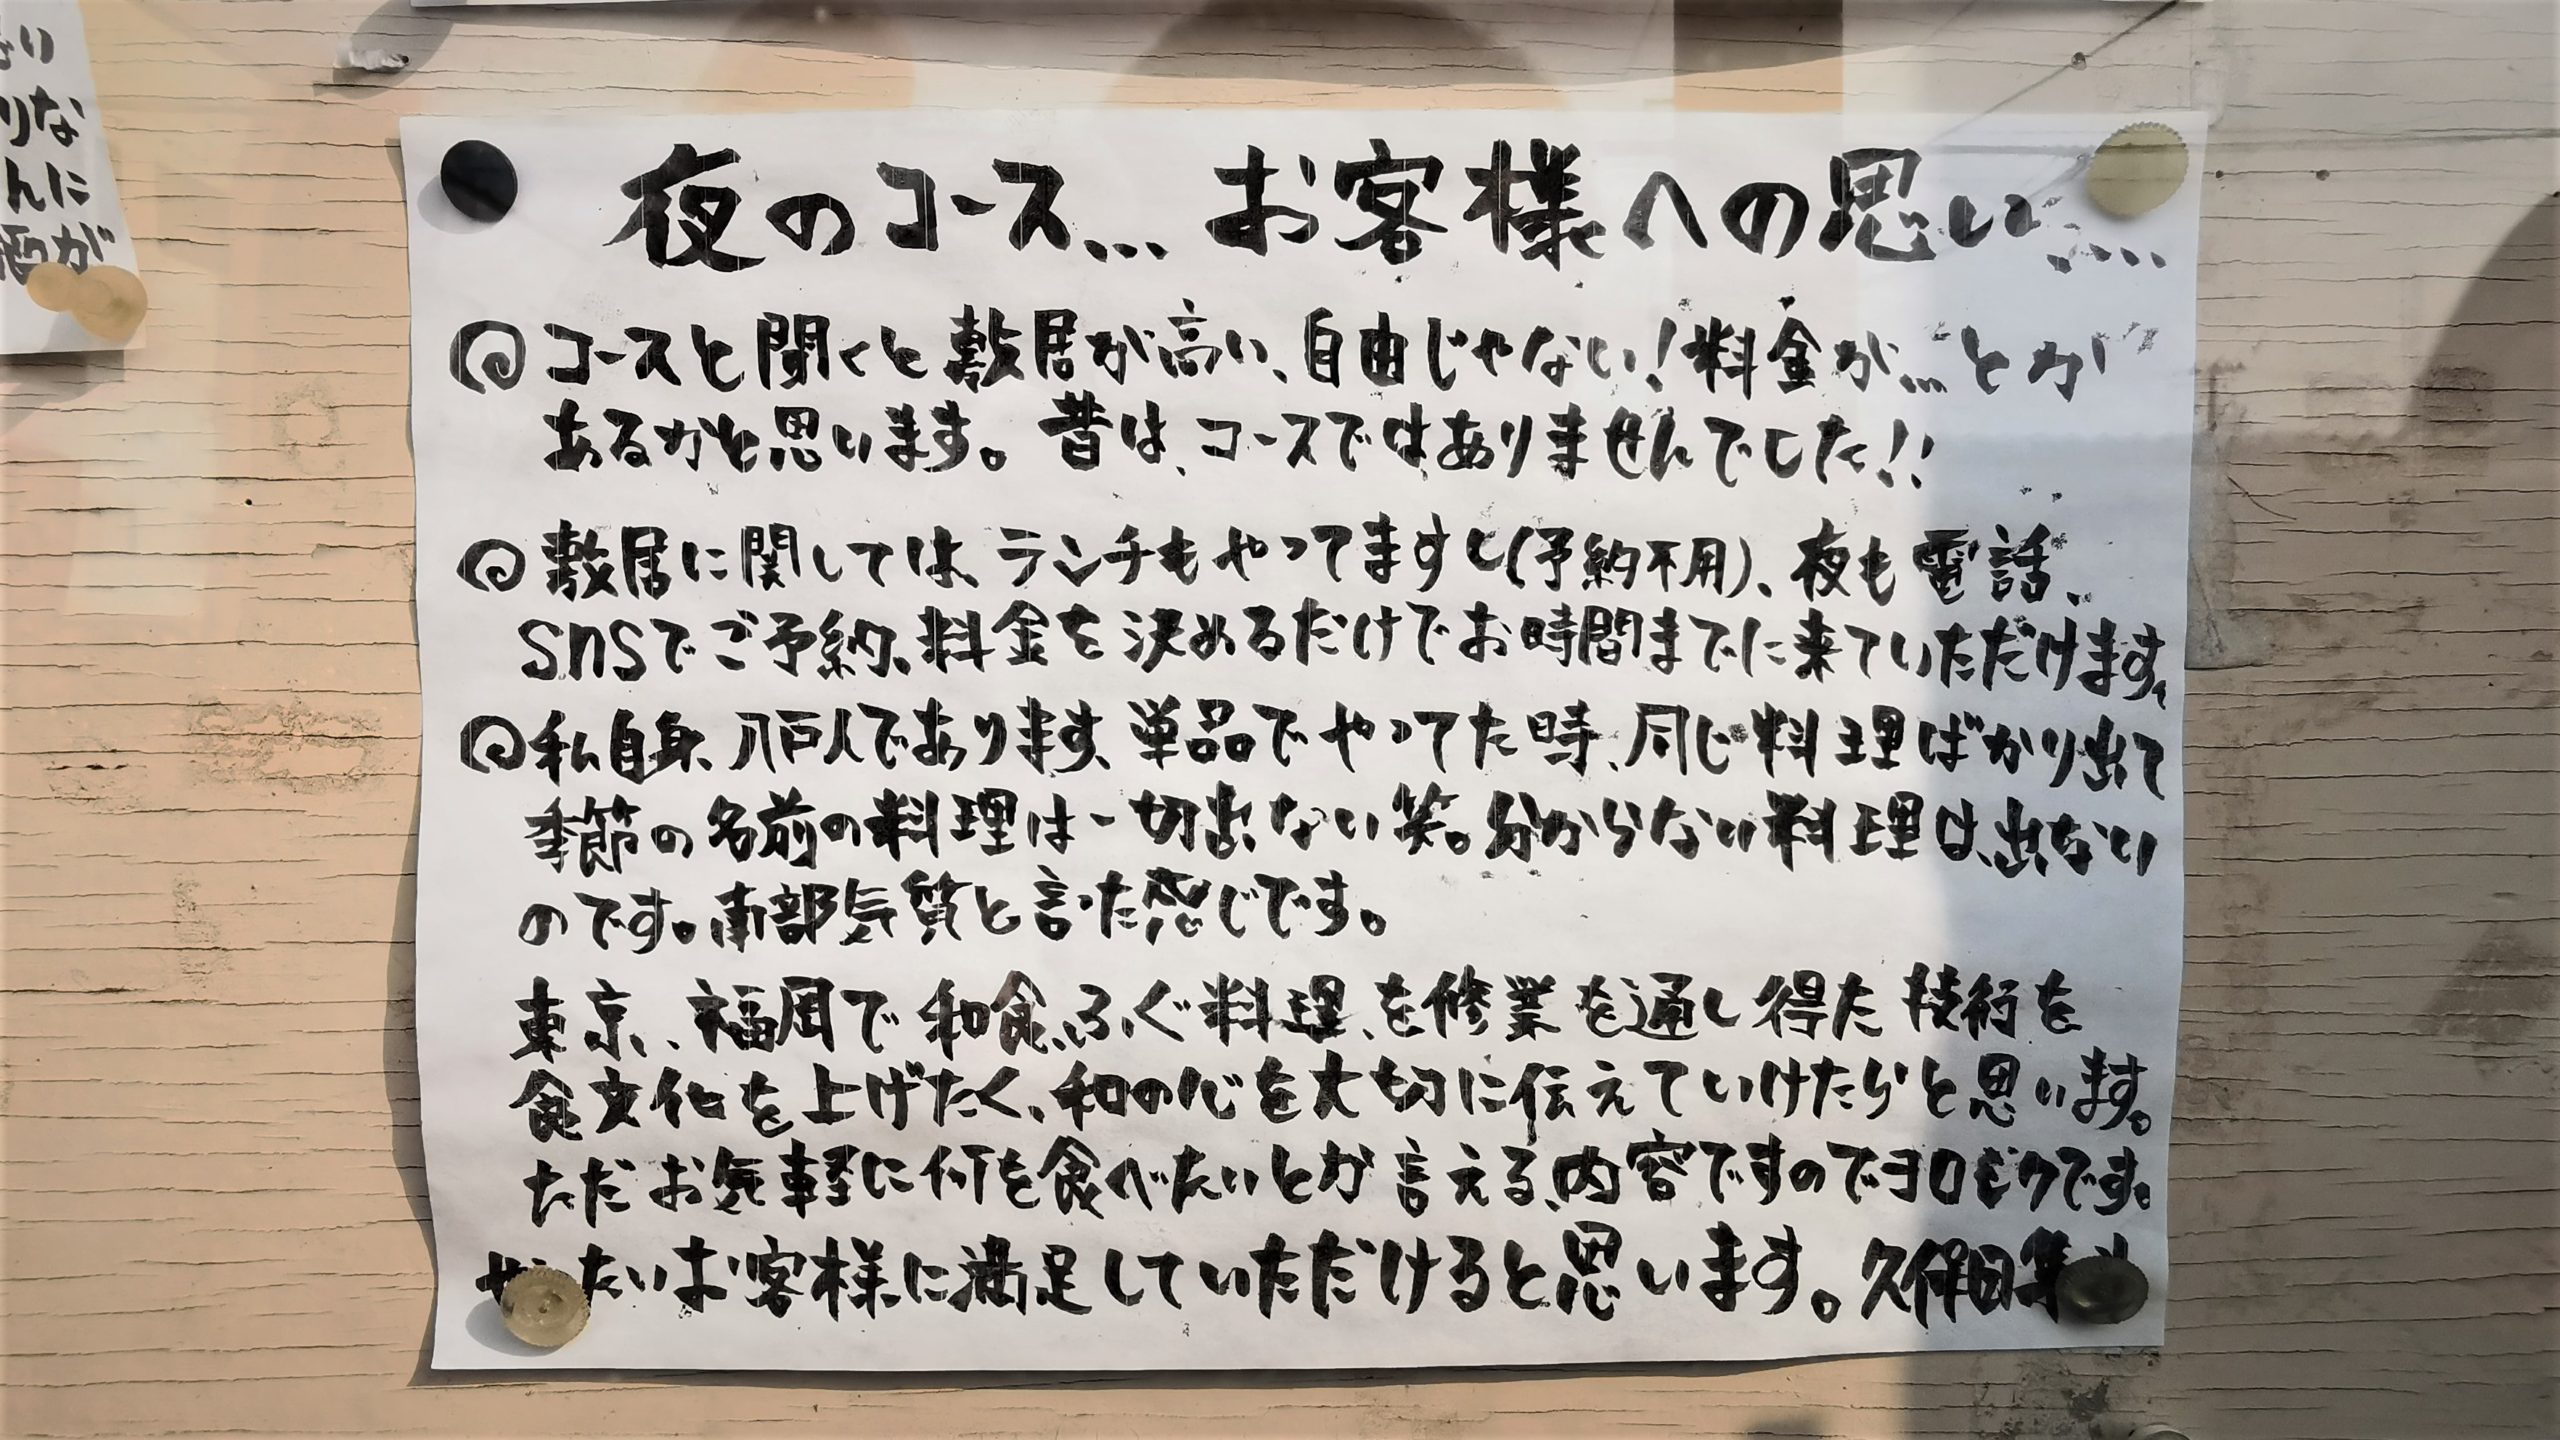 夜のコース… お客様への思い……
コースと聞くと敷居が高い、自由じゃない!料金が…とか
あるかと思います。昔は、コースではありませんでした!!
敷居に関しては、ランチもやってますし(予約不用)、夜も電話、
SnSでご予約、料金を決めるだけでお時間までに来ていただけます。
私自身、八戸人であります、単品でやってた時、同じ料理ばかり出て
季節の名前の料理は一切出ない笑。分からない料理は、出ない
のです。南部気質と言った感じです。
東京、福岡で和食、ふぐ料理、を修業を通し得た技術を
食文化を上げたく、和の心を大切に伝えていけたらと思います。
ただお気軽に何を食べたいとか言える、内容ですのでヨロシクです。
たいお客様に満足していただけると思います。久保田
さい
りな
んに
酒が